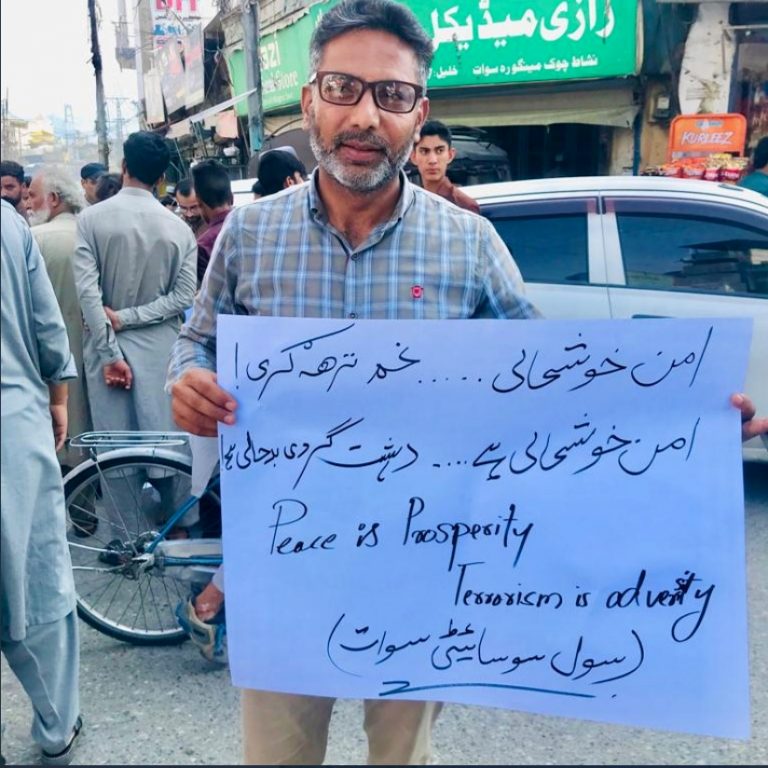 رازی میڈیکل
نشاط چوک مینگورہ سوات
Store
KURLEEZ
امن خوشحالی ..... غم ترھہ گری!
امن خوشحالی ہے .... دہشت گردی بدحالی ہے!
Peace is Prosperity
Terrorism is adversity
(سول سوسائیٹی سوات)